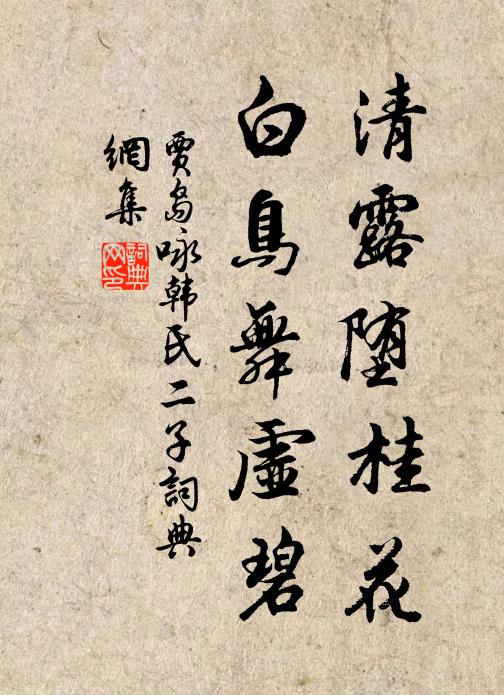 清露堕桂花
白鳥舞虛碧
賈島咏韩氏二子詞典
網集
詞典網印